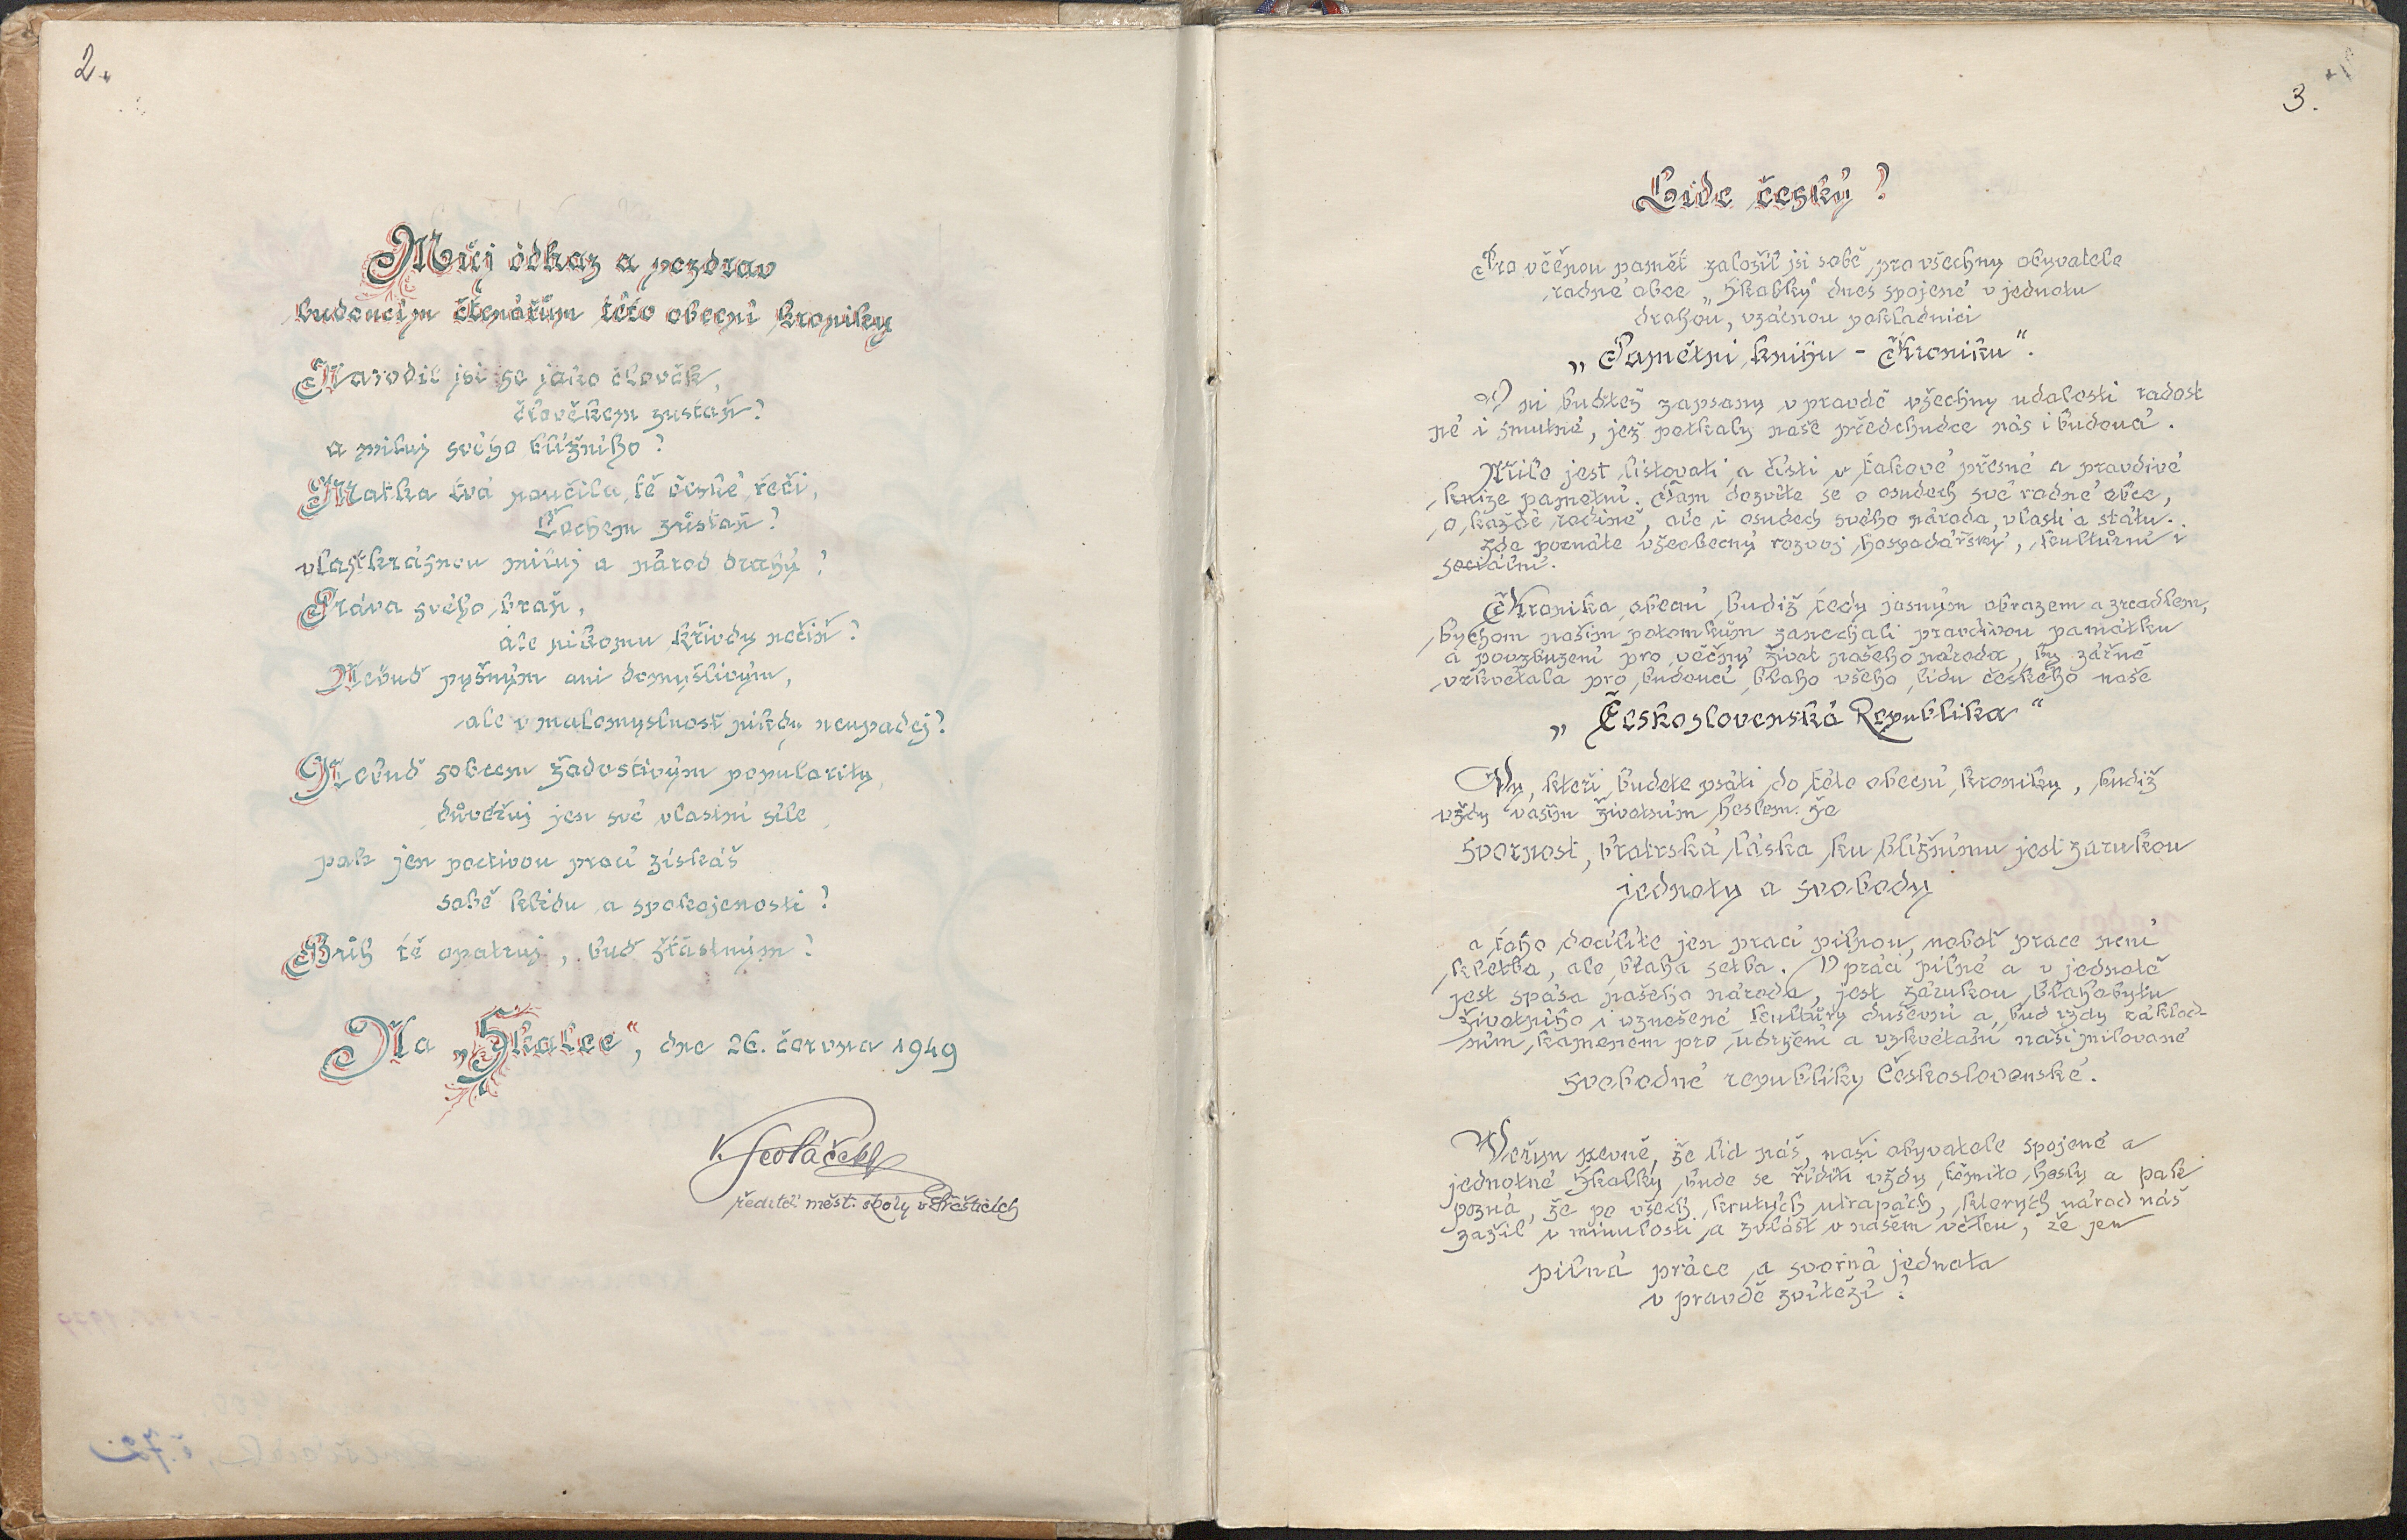 2.
Můj odkaz a pozdrav
budoucím čtenářům této obecní kroniky
Narodil jsi se jako člověk,
člověkem zustaň!
a miluj svého bližního!
Matka tvá naučila tě české řeči,
Čechem zůstaň!
vlast krásnou miluj a národ drahý!
Práva svého braň,
ale nikomu křivdy nečiň!
Nebuď pyšným ani domýšlivým,
ale v malomyslnost nikdy neupadej!
Nebuď sobcem žádostivým popularity,
důvěřuj jen své vlastní síle,
pak jen poctivou prací získáš
sobě klidu a spokojenosti!
Bůh tě opatruj, buď šťastným!
Na „Skalce“, dne 26. června 1949
V.
ředitel měšt. školy v Přešticích
3.
Lide český!
Pro věčnou paměť založil jsi sobě, pro všechny obyvatele
rodné obce „Skalky“ dnes spojené v jednotu
drahou, vzácnou pokladnici
„Pamětní knihu - Kroniku“.
V ni buďtež zapsany v pravdě všechny udalosti radost
né i smutné, jež potkaly naše předchudce nás i budoucí.
Milo jest listovati a čísti v takové přesné a pravdivé
knize pamětní. Tam dozvíte se o osudech své rodné obce,
o každé rodině, ale i osudech svého národa, vlasti a státu.
Zde poznáte všeobecný rozvoj hospodářský, kulturní i
sociální.
Kronika obecní budiž tedy jasným obrazem a zrcadlem,
bychom našim potomkům zanechali pravdivou památku
a povzbuzení pro věčný život našeho národa, by zářně
vzkvétala pro budoucí blaho všeho lidu českého naše
„Československá Republika“
Vy, kteří budete psáti do této obecní kroniky, budiž
vždy vašim životním heslem. že
svornost, bratrská láska ku bližnímu jest zarukou
jednoty a svobody
a toho docílíte jen prací pilnou, neboť prace není
kletba, ale blahá setba. V práci pilné a v jednotě
jest spása našeho národa, jest zárukou blahobytu
životního i vznešené kultůry duševní a buď vždy základ-
ním kamenem pro udržení a vzkvétání naší milované
svobodné republiky Československé.
Věřím pevně, že lid náš, naši obyvatele spojené a
jednotné Skalky bude se říditi vždy těmito hesly a pak
pozná, že po všech krutých utrapách, kterých národ náš
zažil v minulosti a zvlášť v našem věku, že jen
pilná práce a svorná jednota
v pravdě zvítězí!